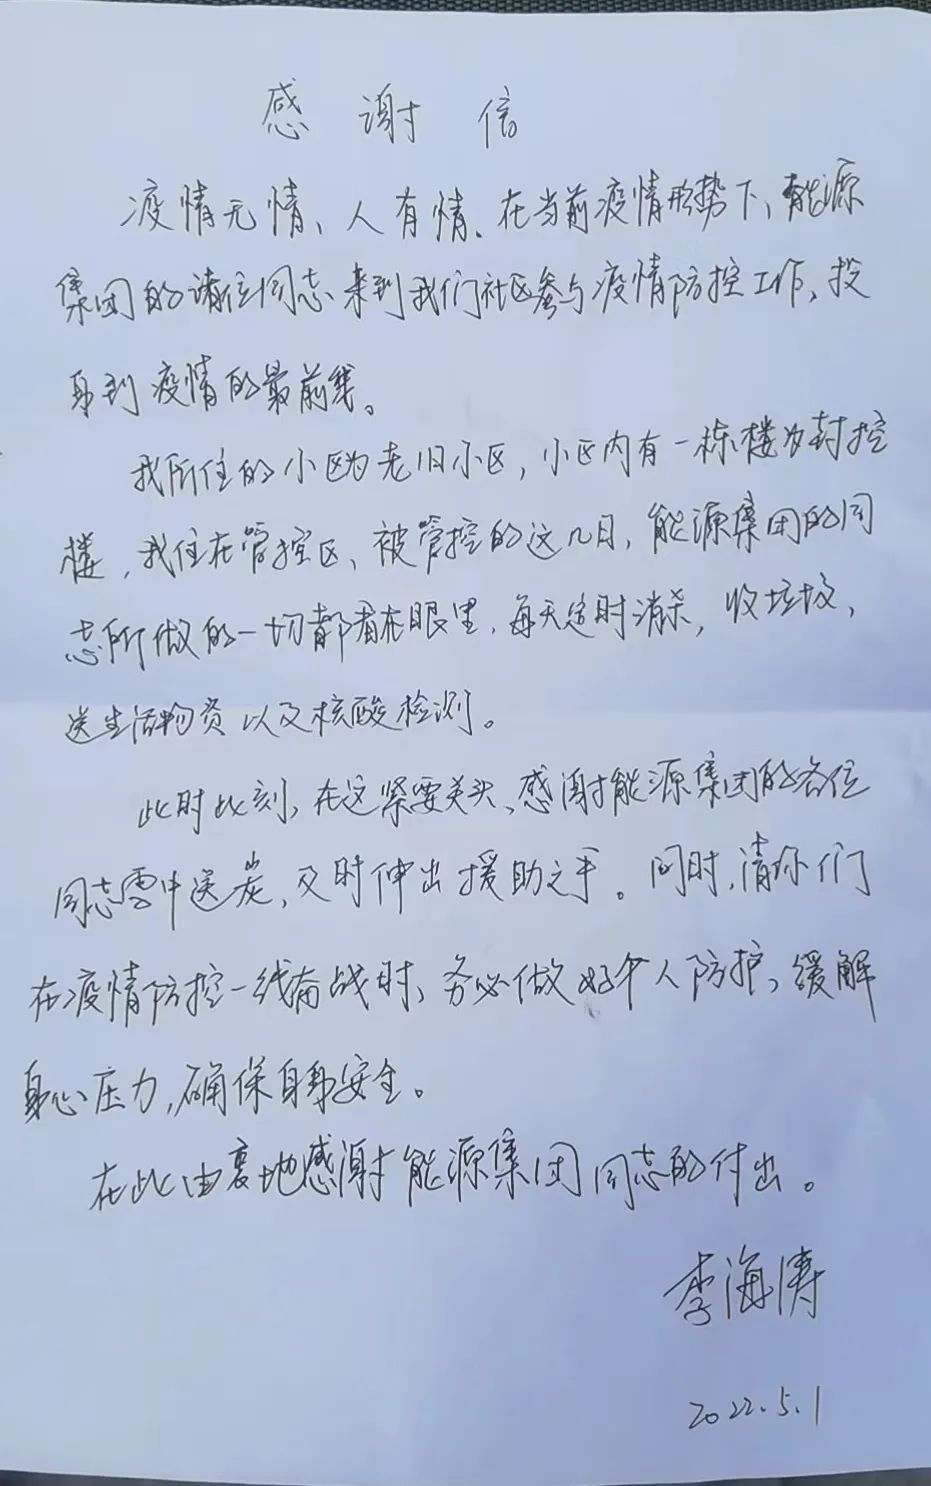 感谢信
疫情无情、人有情、在当前疫情形势下、能源
集团的诸位同志来到我们社区参与疫情防控工作、投
身到疫情的最前线。
我所住的小区为老旧小区，小区内有一栋楼为封控
楼，我住在管控区、被管控的这几日，能源集团的同
志所做的一切都看在眼里，每天定时消杀，收垃圾，
送生活物资以及核酸检测。
此时此刻，在这紧要关头、感谢能源集团的各位
同志雪中送炭，及时伸出援助之手。同时，请你们
在疫情防控一线奋战时、务必做好个人防护、缓解
身心压力，确保自身安全。
在此由衷地感谢能源集团同志的付出。
李海涛
2022.5.1